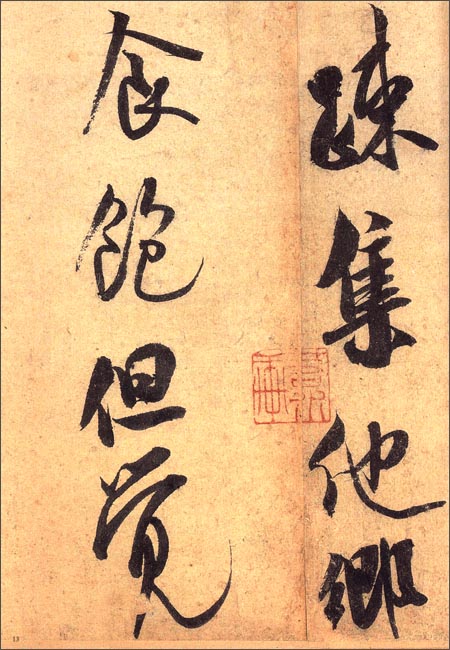 踈集他鄉
食飽但覺
13